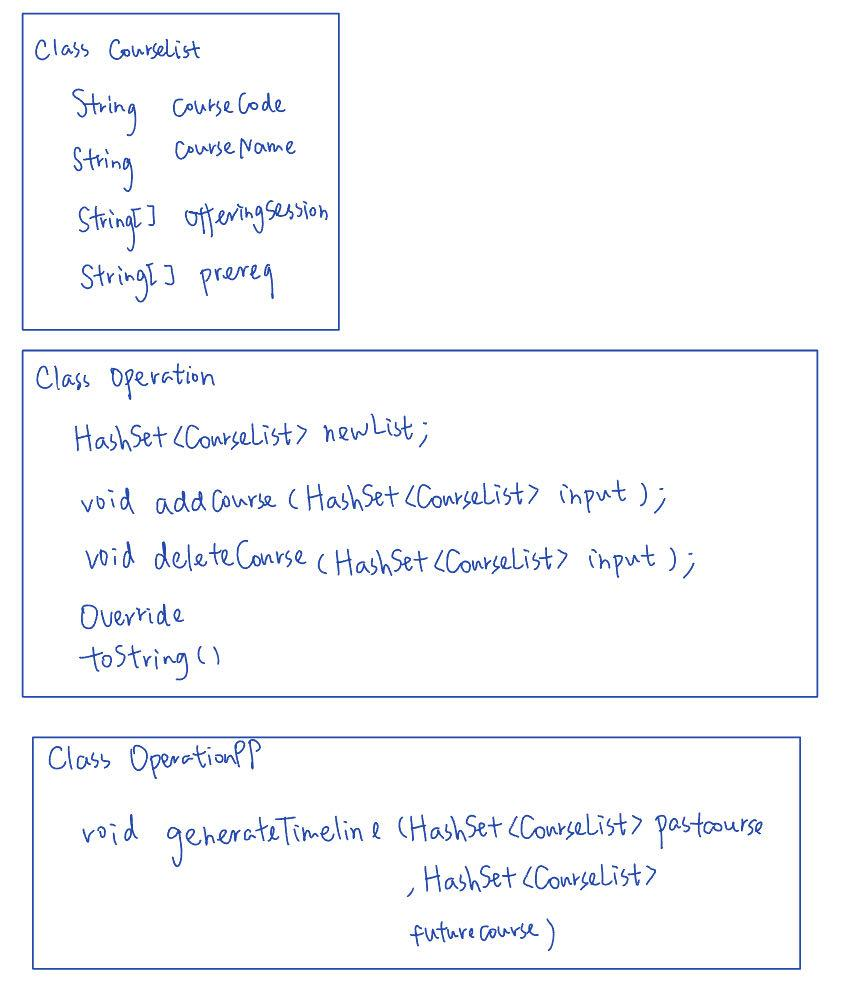 Class CourseList
String CourseCode
String CourseName
String[] offeringSession
String[] prereq
Class Operation
HashSet<CourseList> newList;
void addCourse (HashSet<CourseList> input);
void deleteCourse (HashSet<CourseList> input);
Override
toString()
Class OperationPP
void generateTimeline (HashSet<CourseList> pastcourse
, HashSet<CourseList>
futurecourse)